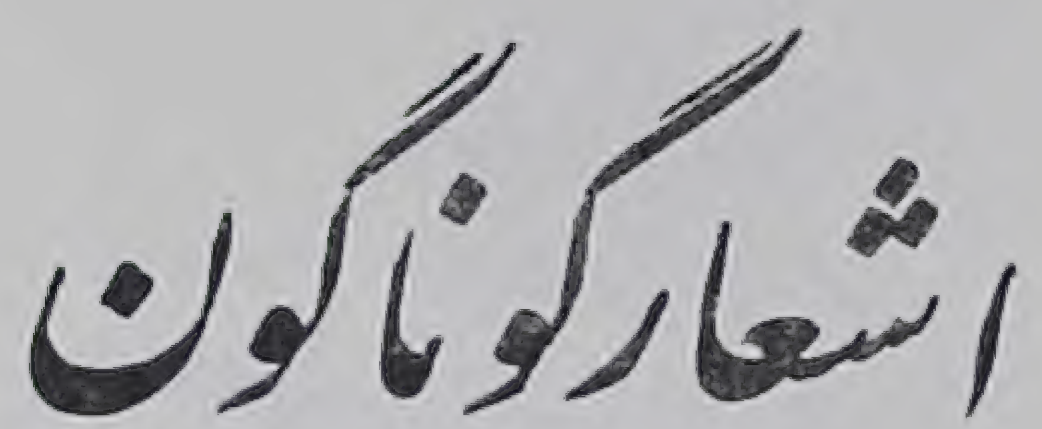 اشعار گوناگون